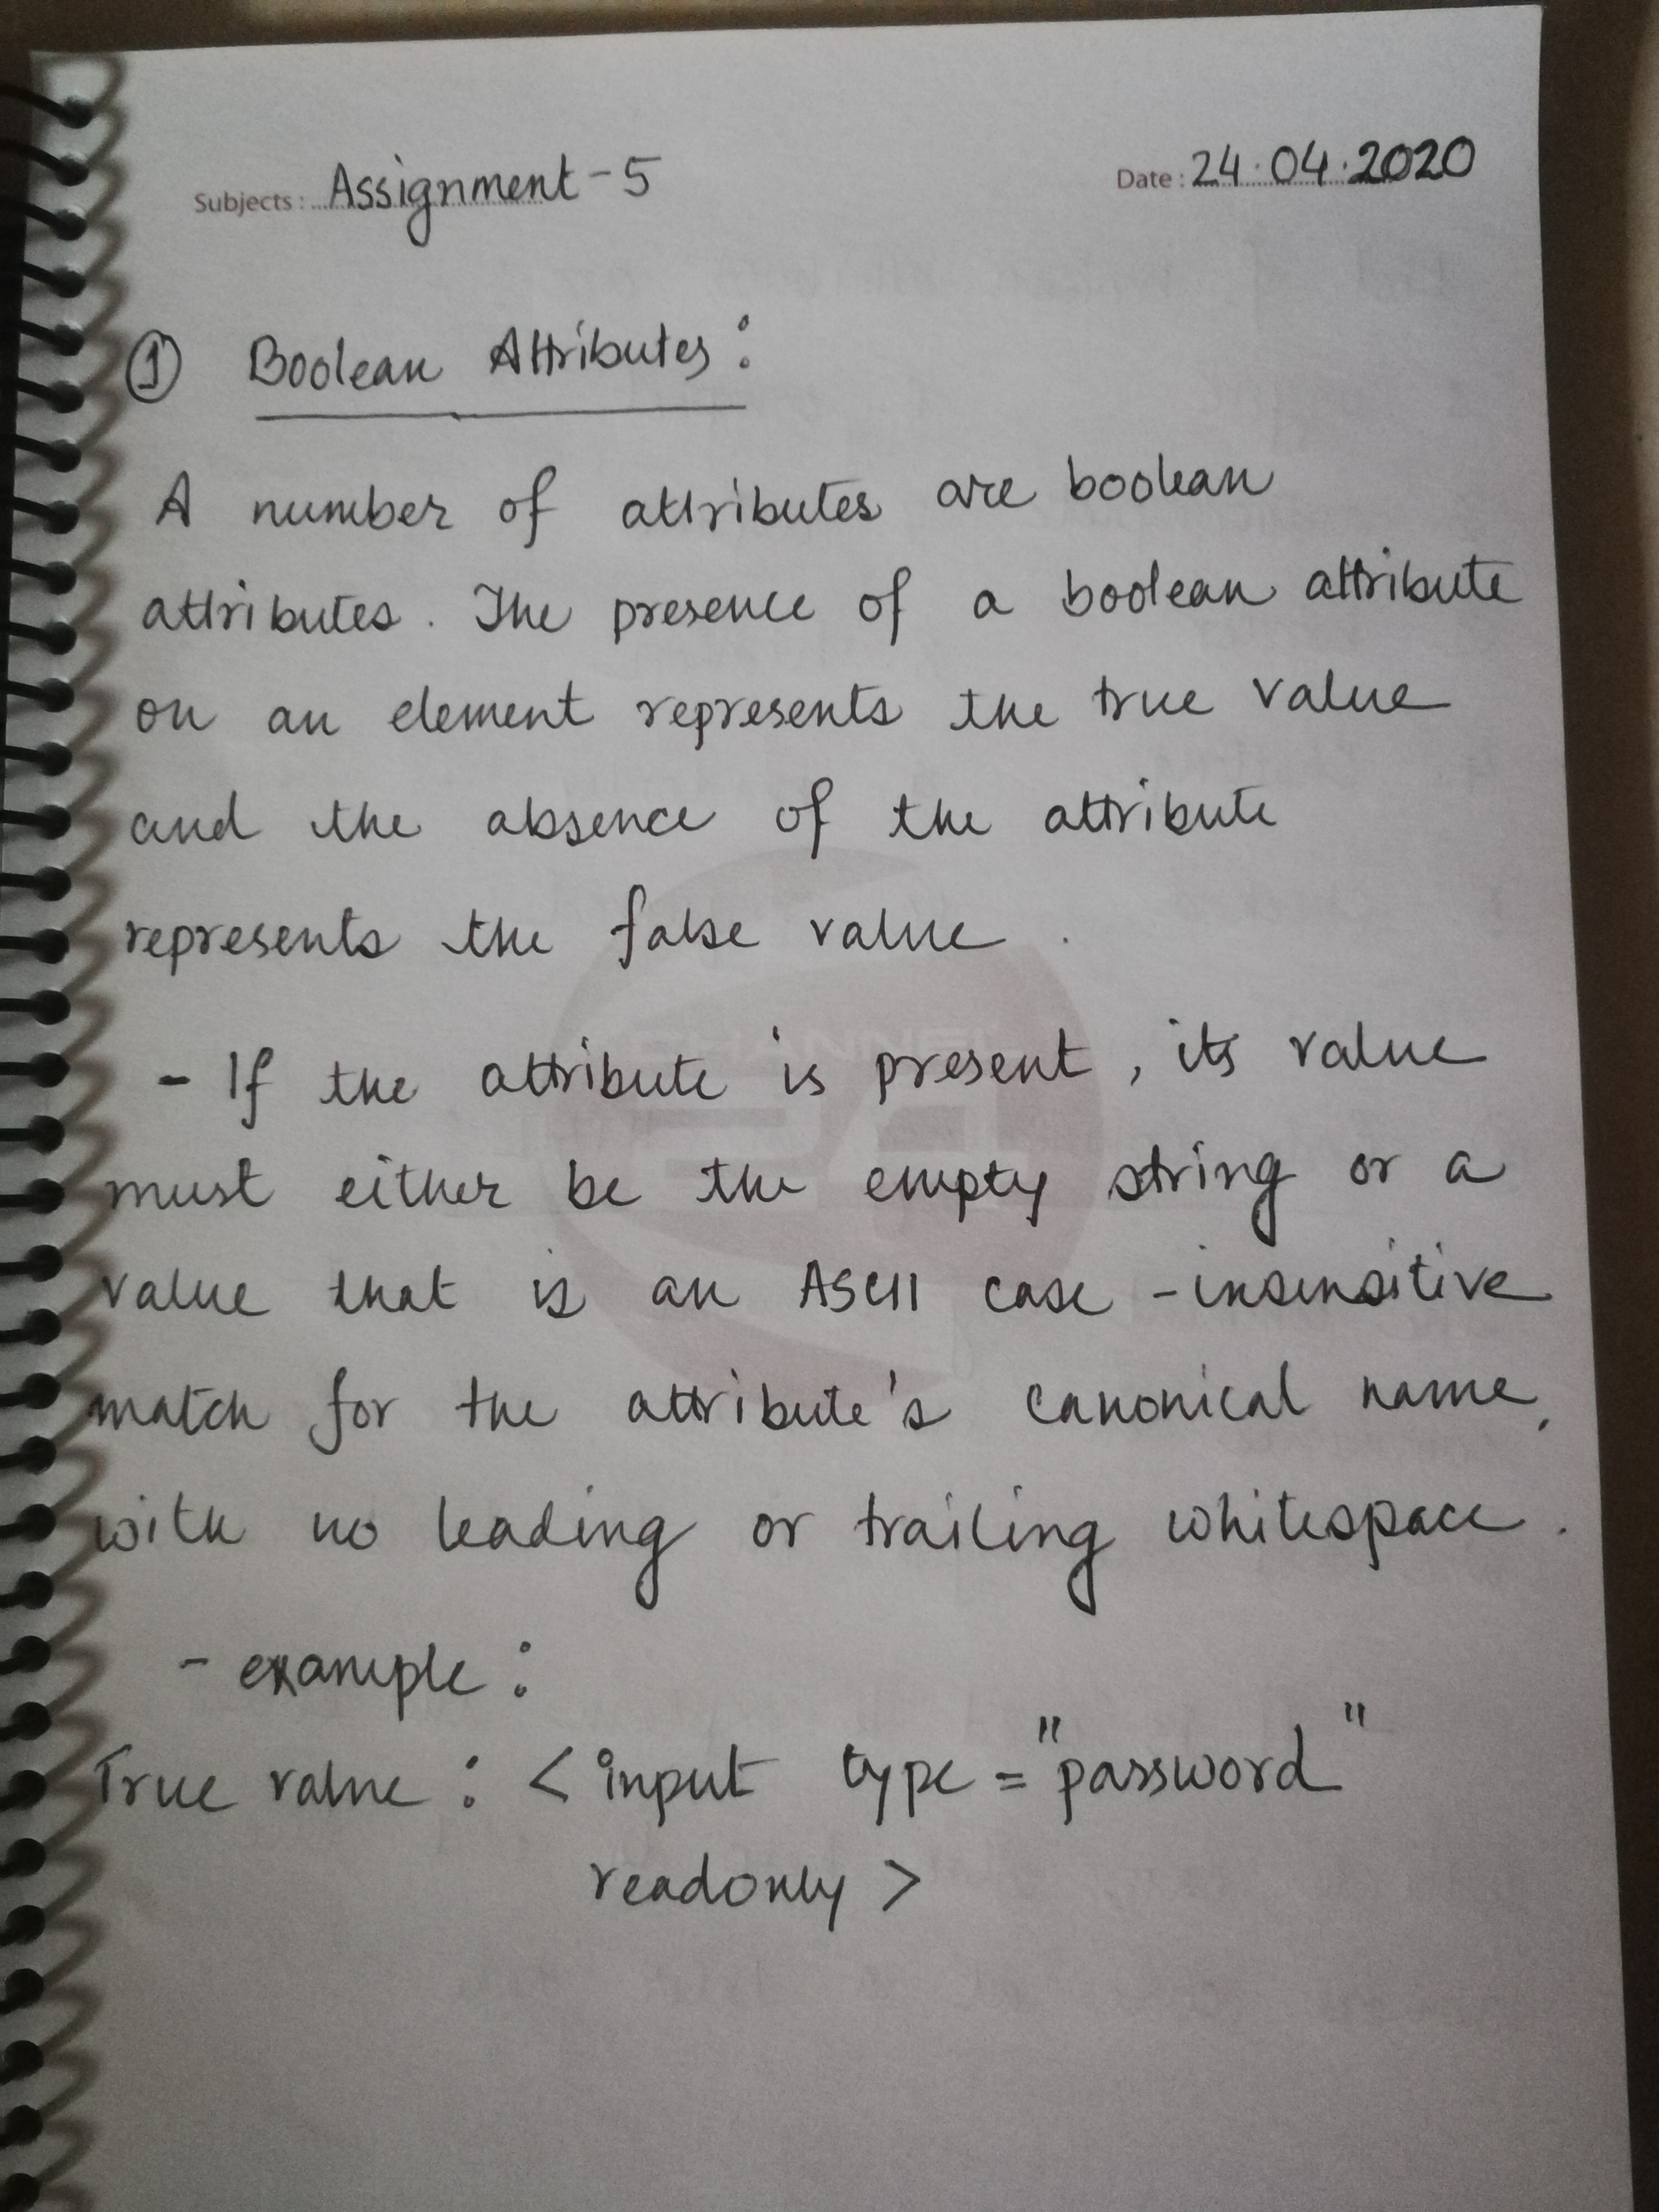 Subjects: Assignment-5
Date: 24.04.2020
① Boolean Attributes:
A number of attributes are boolean
attributes. The presence of a boolean attribute
on an element represents the true value
and the absence of the attribute
represents the false value.
- If the attribute is present, its value
must either be the empty string or a
value that is an ASCII case-insensitive
match for the attribute's canonical name,
with no leading or trailing whitespace.
- example:
True value: <input type="password"
readonly>